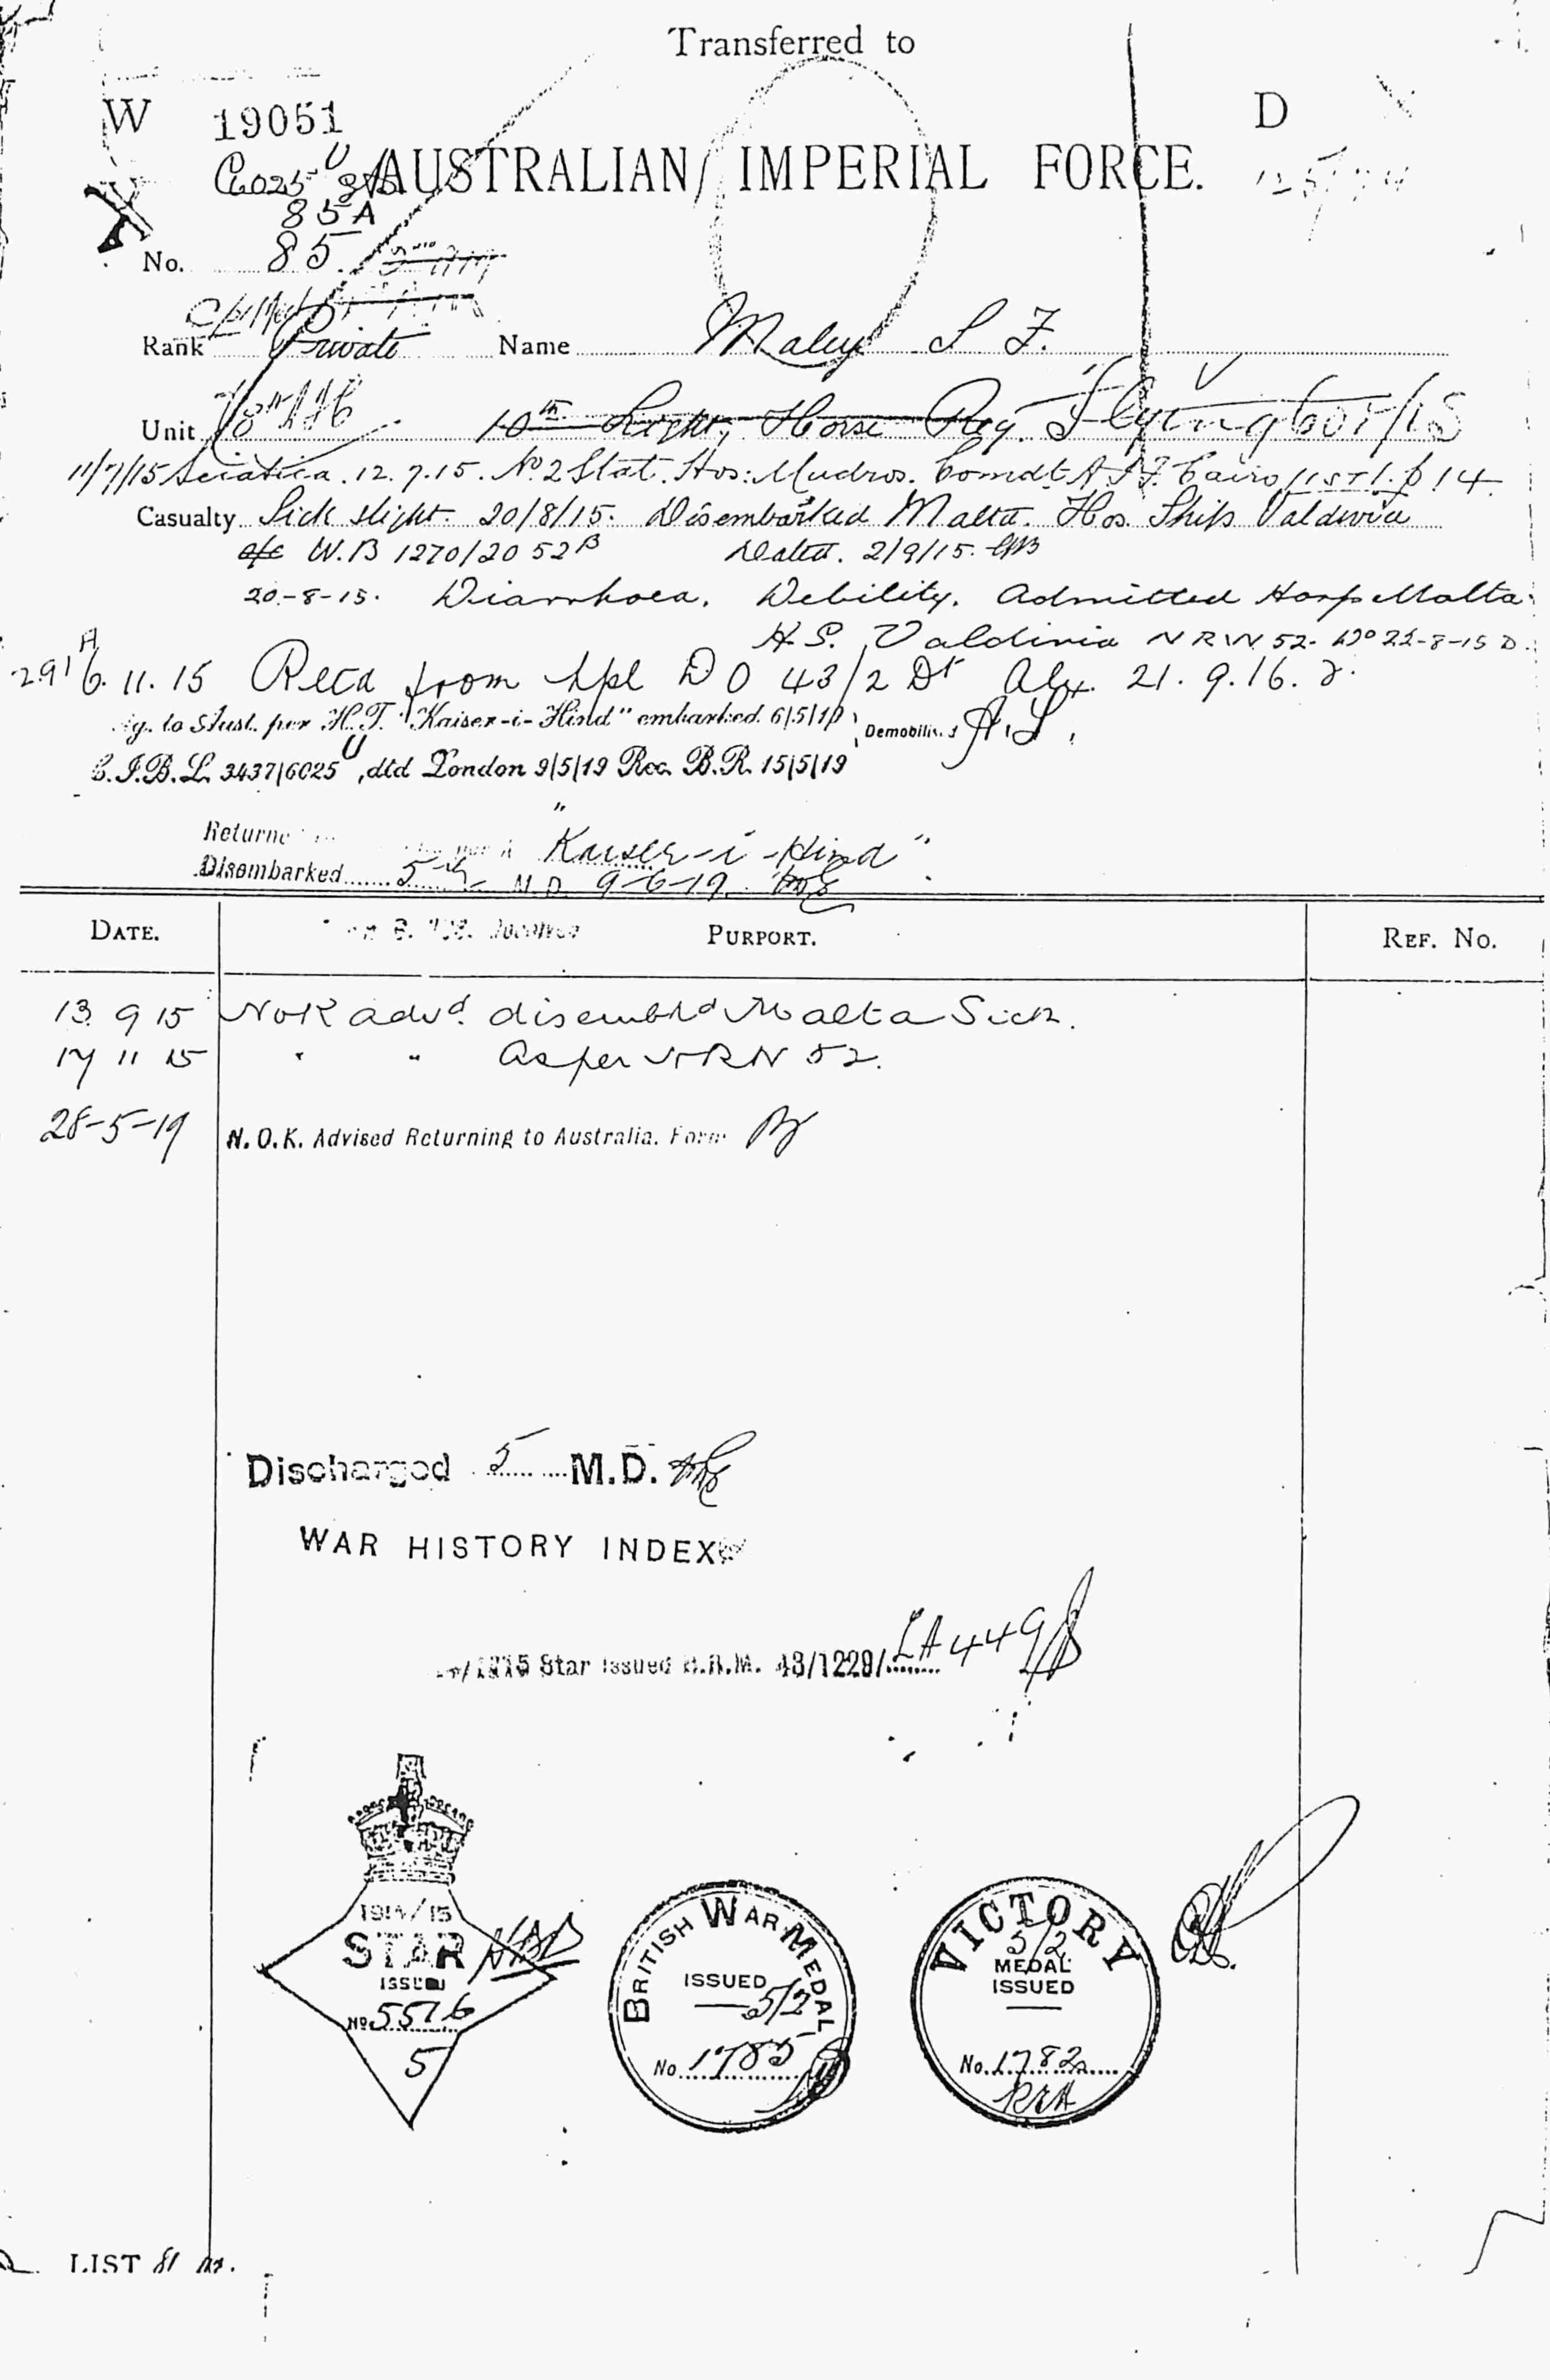 Transferred to
W 19051 D
AUSTRALIAN IMPERIAL FORCE.
85A
No. 85
Rank Private Name Maley S F.
Unit 10th Light Horse Reg. Flying
11/7/15 Sciatica. 12.7.15. No 2 Stat. Hos: Mudros. Comdt A.I.F. Cairo
Casualty Sick slight. 20/8/15. Disembarked Malta. Hos. Ship Valdivia
W.B 1270/20 52B Dated. 2/9/15.
20-8-15. Diarrhoea. Debility. Admitted Hosp Malta.
H.S. Valdivia N R W 52. 22-8-15 D.
6.11.15 Recd from hpl D O 43/2 Dt Alex. 21.9.16.
to Aust. per H.T. "Kaiser-i-Hind" embarked 6/5/19
C.I.B.L. 3437/6025, dtd London 9/5/19 Rec. B.R. 15/5/19
"Kaiser-i-Hind"
Disembarked 5th M.D. 9-6-19.
DATE. PURPORT. REF. NO.
13 9 15 NoK advd. disembkd Malta Sick.
17 11 15 " " As per NRW 52.
28-5-19 N.O.K. Advised Returning to Australia. Form
Discharged 5 M.D.
WAR HISTORY INDEX
/1915 Star Issued 43/1229/ LA 449
1914/15
STAR
ISSUED
No 5576
5
BRITISH WAR MEDAL
ISSUED
5/2
No 1785
VICTORY
5/2
MEDAL
ISSUED
No. 1782
RRA
LIST 81